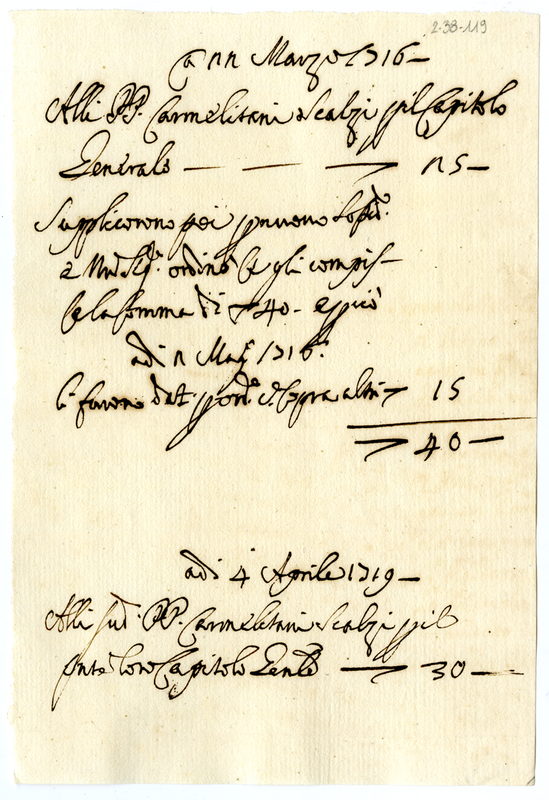 2-38-119
a 22 Marzo 1716
Alli PP. Carmelitani Scalzi p il Capitolo
Generale — — 25 —
Supplicorono poi p nuovo
e ordinò che gli
la somma di 40 - e p ciò
adi 2 Mag. 1716.
li furono dati p ord.e c.e sopra altri 15
40 —
adi 4 Aprile 1719 —
Alli sud. PP. Carmelitani Scalzi p il
loro Capitolo Genle — 30 —